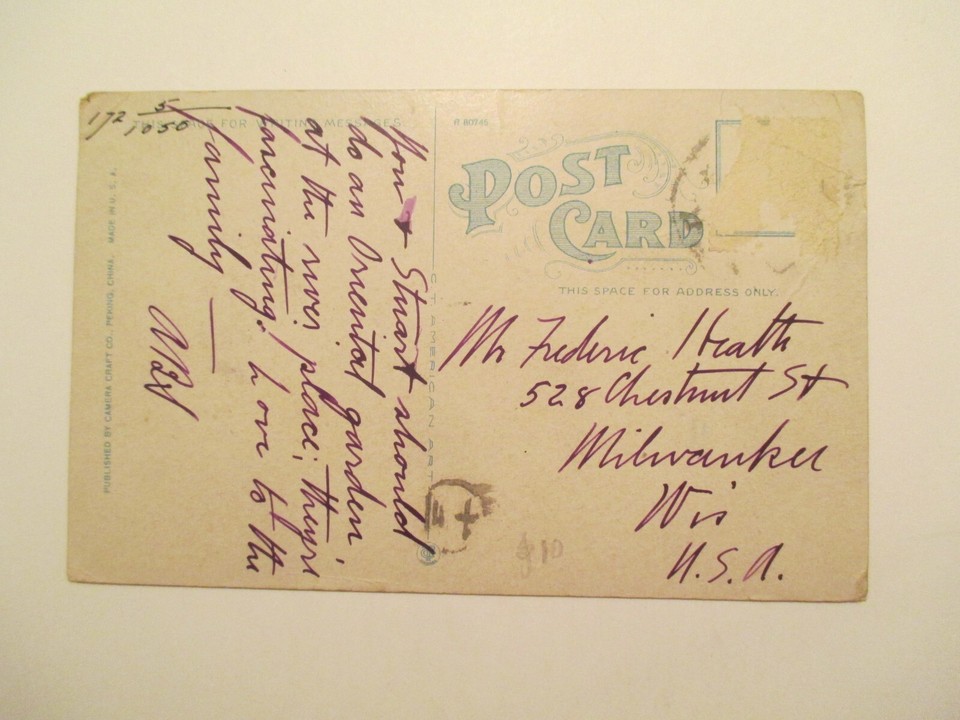 172 5/1050
THIS SPACE FOR WRITING MESSAGES
You + Stuart should
do an Oriental garden
at the river place; theyre
fascinating. Love to the
family —
PUBLISHED BY CAMERA CRAFT CO., PEKING, CHINA. MADE IN U.S.A.
R 80745
POST
CARD
THIS SPACE FOR ADDRESS ONLY.
Mr Frederic Heath
528 Chestnut St
Milwaukee
Wis
U.S.A.
$10